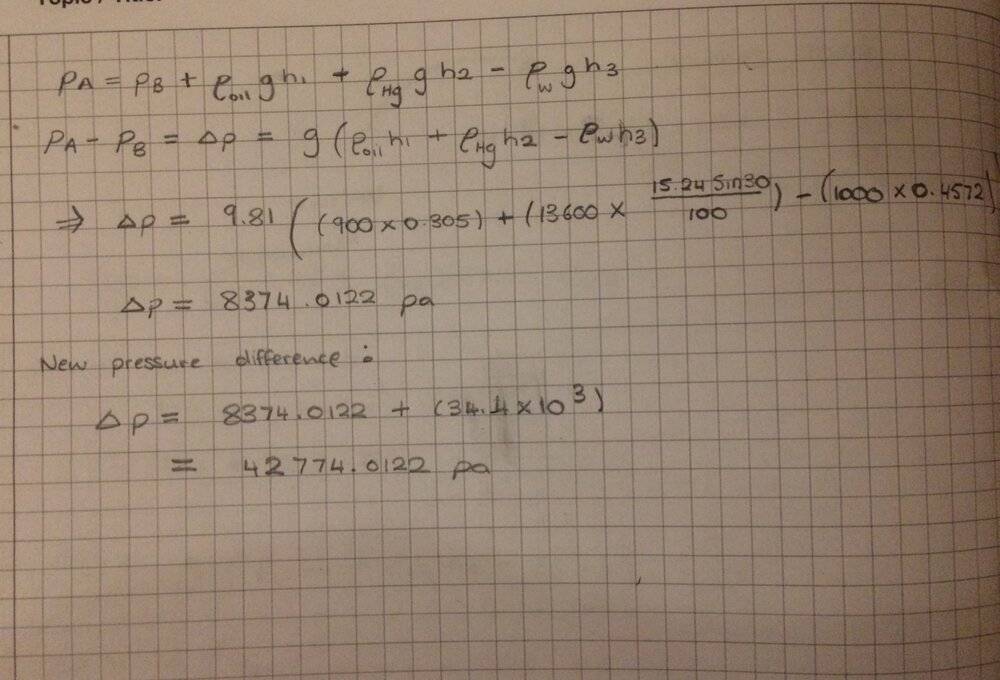 Topic / Title:
PA = PB + ρoil g h1 + ρHg g h2 - ρw g h3
PA - PB = Δp = g (ρoil h1 + ρHg h2 - ρw h3)
⇒ Δp = 9.81 ( (900 × 0.305) + (13600 × 15.24 Sin30 / 100 ) - (1000 × 0.4572)
Δp = 8374.0122 pa
New pressure difference :
Δp = 8374.0122 + (34.4 × 10³)
= 42774.0122 pa